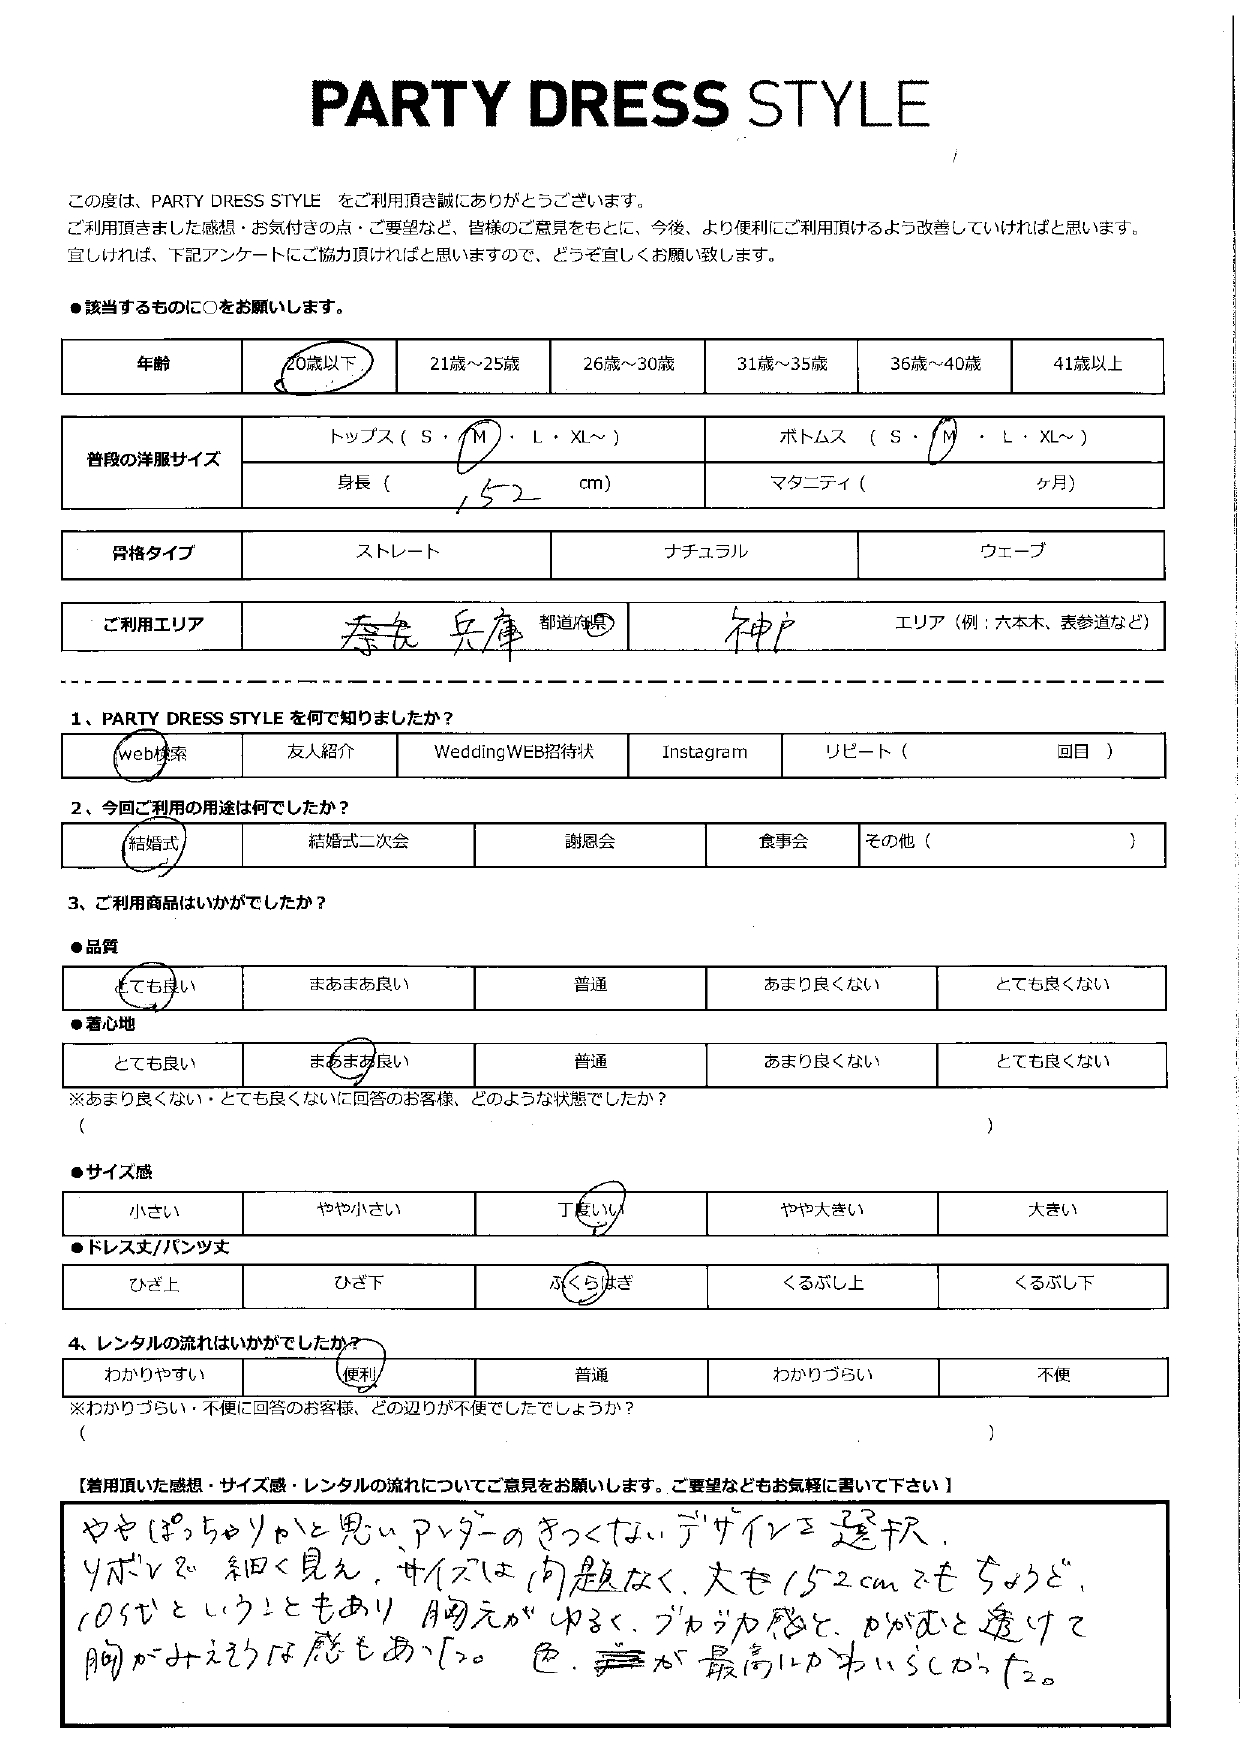 PARTY DRESS STYLE
この度は、PARTY DRESS STYLE をご利用頂き誠にありがとうございます。
ご利用頂きました感想・お気付きの点・ご要望など、皆様のご意見をもとに、今後、より便利にご利用頂けるよう改善していければと思います。
宜しければ、下記アンケートにご協力頂ければと思いますので、どうぞ宜しくお願い致します。
●該当するものに○をお願いします。
年齢 20歳以下 21歳～25歳 26歳～30歳 31歳～35歳 36歳～40歳 41歳以上
普段の洋服サイズ トップス ( S ・ M ・ L ・ XL～ ) ボトムス ( S ・ M ・ L ・ XL～ )
身長 ( 152 cm) マタニティ ( ヶ月)
骨格タイプ ストレート ナチュラル ウェーブ
ご利用エリア 奈良 兵庫 都道府県 神戸 エリア（例：六本木、表参道など）
1、PARTY DRESS STYLE を何で知りましたか？
web検索 友人紹介 WeddingWEB招待状 Instagram リピート ( 回目 )
2、今回ご利用の用途は何でしたか？
結婚式 結婚式二次会 謝恩会 食事会 その他 ( )
3、ご利用商品はいかがでしたか？
●品質
とても良い まあまあ良い 普通 あまり良くない とても良くない
●着心地
とても良い まあまあ良い 普通 あまり良くない とても良くない
※あまり良くない・とても良くないに回答のお客様、どのような状態でしたか？
( )
●サイズ感
小さい やや小さい 丁度いい やや大きい 大きい
●ドレス丈/パンツ丈
ひざ上 ひざ下 ふくらはぎ くるぶし上 くるぶし下
4、レンタルの流れはいかがでしたか？
わかりやすい 便利 普通 わかりづらい 不便
※わかりづらい・不便に回答のお客様、どの辺りが不便でしたでしょうか？
( )
【着用頂いた感想・サイズ感・レンタルの流れについてご意見をお願いします。ご要望などもお気軽に書いて下さい】
ややぽっちゃりかと思い、アンダーのきつくないデザインを選択、
リボンで細く見え、サイズは問題なく、丈も152cmでもちょうど、
胸元がゆるく、ブカブカ感と、かがむと透けて
胸がみえそうな感もあった。 色、 が最高にかわいらしかった。